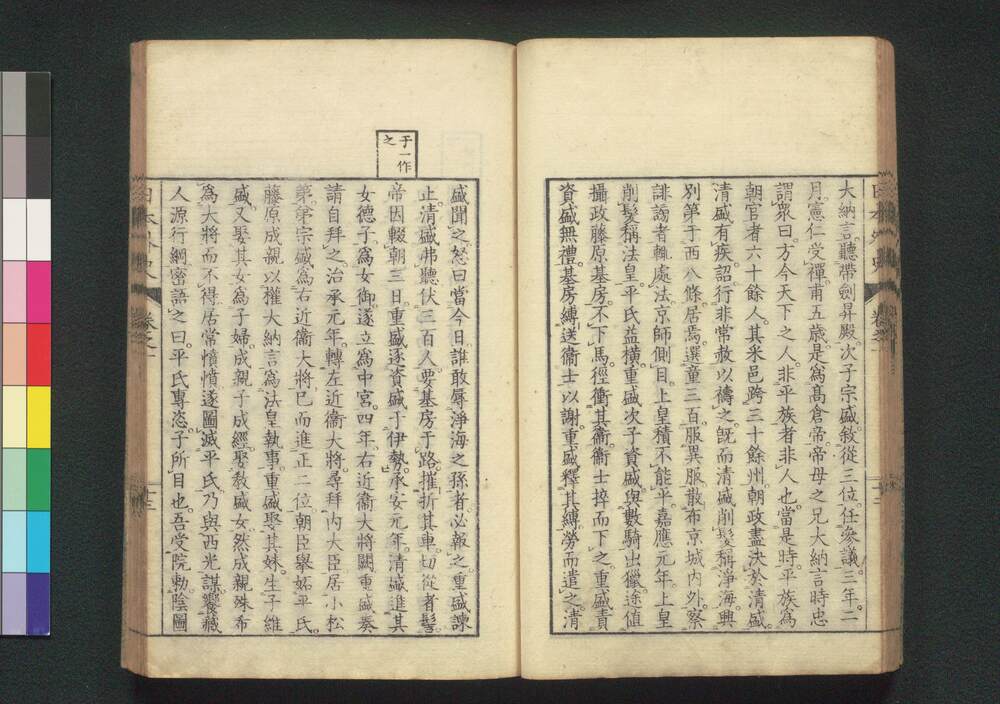 大納言聽帶劍昇殿。次子宗盛敍從三位。任參議。三年二
月。憲仁受禪。甫五歲。是爲高倉帝。帝母之兄大納言時忠
謂衆曰。方今天下之人。非平族者非人也。當是時。平族爲
朝官者六十餘人。其采邑跨三十餘州。朝政盡決於淸盛。
淸盛有疾。詔行非常赦以禱之。旣而淸盛削髮稱淨海。興
別第于西八條居焉。選童三百。服異服。散布京城內外。察
誹謗者。輒處法。京師側目。上皇積不能平。嘉應元年。上皇
削髮稱法皇。平氏益橫。重盛次子資盛與數騎出獵。途値
攝政藤原基房。不下馬。徑衝其衞。衞士捽而下之。重盛責
資盛無禮。基房縛送衞士以謝。重盛釋其縛。勞而遣之。淸
盛聞之怒曰。當今日。誰敢辱淨海之孫者。必報之。重盛諫
止。淸盛弗聽。伏三百人。要基房于路。摧折其車。切從者髻。
帝因輟朝三日。重盛逐資盛于伊勢。承安元年。淸盛進其
女德子。爲女御。遂立爲中宮。四年。右近衞大將闕。重盛奏
請自拜之。治承元年。轉左近衞大將。尋拜內大臣。居小松
第。弟宗盛爲右近衞大將。已而進正二位。朝臣擧妬平氏。
藤原成親以權大納言爲法皇執事。重盛娶其妹。生子維
盛。又娶其女爲子婦。成親子成經。娶敎盛女。然成親殊希
爲大將而不得。居常憤憤。遂圖滅平氏。乃與西光謀。饗藏
人源行綱。密語之曰。平氏專恣。子所目也。吾受院勅。陰圖
于一作
之